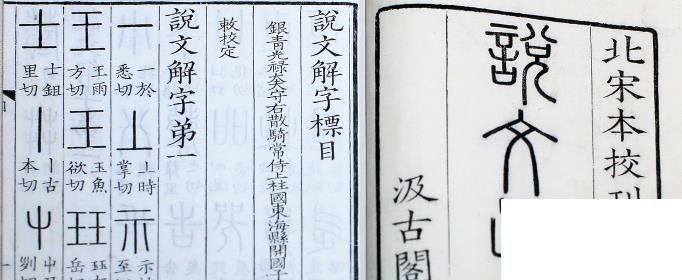 北宋本挍刊
說文
汲古閣
說文解字標目
銀青光祿大夫守右散騎常侍上柱國東海縣開國子
敕挍定
說文解字弟一
一於悉切 丄 丄時掌切 示 示至
王 王雨方切 王 玉魚欲切 玨 玨岳
士 士鉏里切 丨 丨古本切 屮 屮